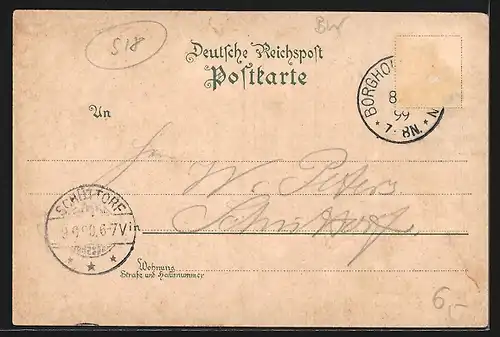 BW
518
Deutsche Reichspost
Postkarte
BORGHO N
8
99
* 7-8N. *
An
Herrn W. Peters
SCHÜTTORF
6-7V
in
Schüttorf
Wohnung
Straße und Hausnummer
6,-